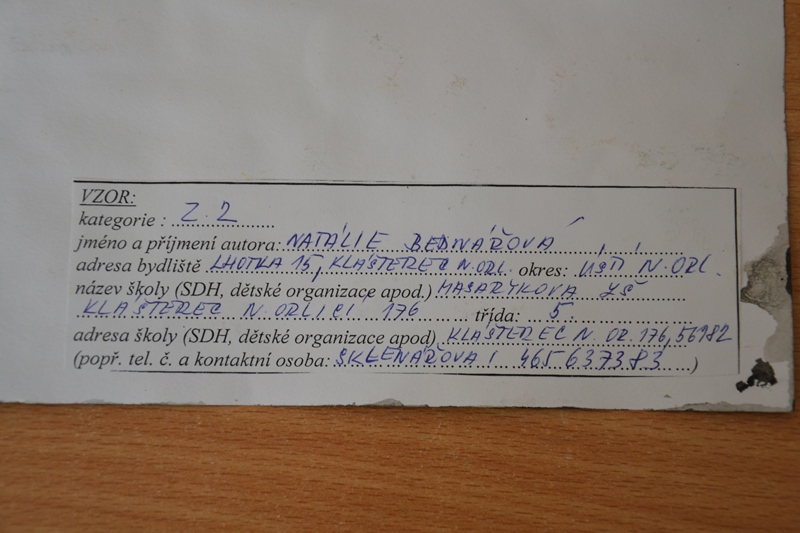 VZOR:
kategorie : Z.2
jméno a příjmení autora: NATÁLIE BEDNÁŘOVÁ
adresa bydliště LHOTKA 15, KLÁŠTEREC N. ORL. okres: ÚSTÍ N. ORL.
název školy (SDH, dětské organizace apod.) MASARYKOVA ZŠ
KLÁŠTEREC N. ORLICÍ 176 třída: 5.
adresa školy (SDH, dětské organizace apod) KLÁŠTEREC N. OR. 176, 56182
(popř. tel. č. a kontaktní osoba: SKLENÁŘOVA 465637383)